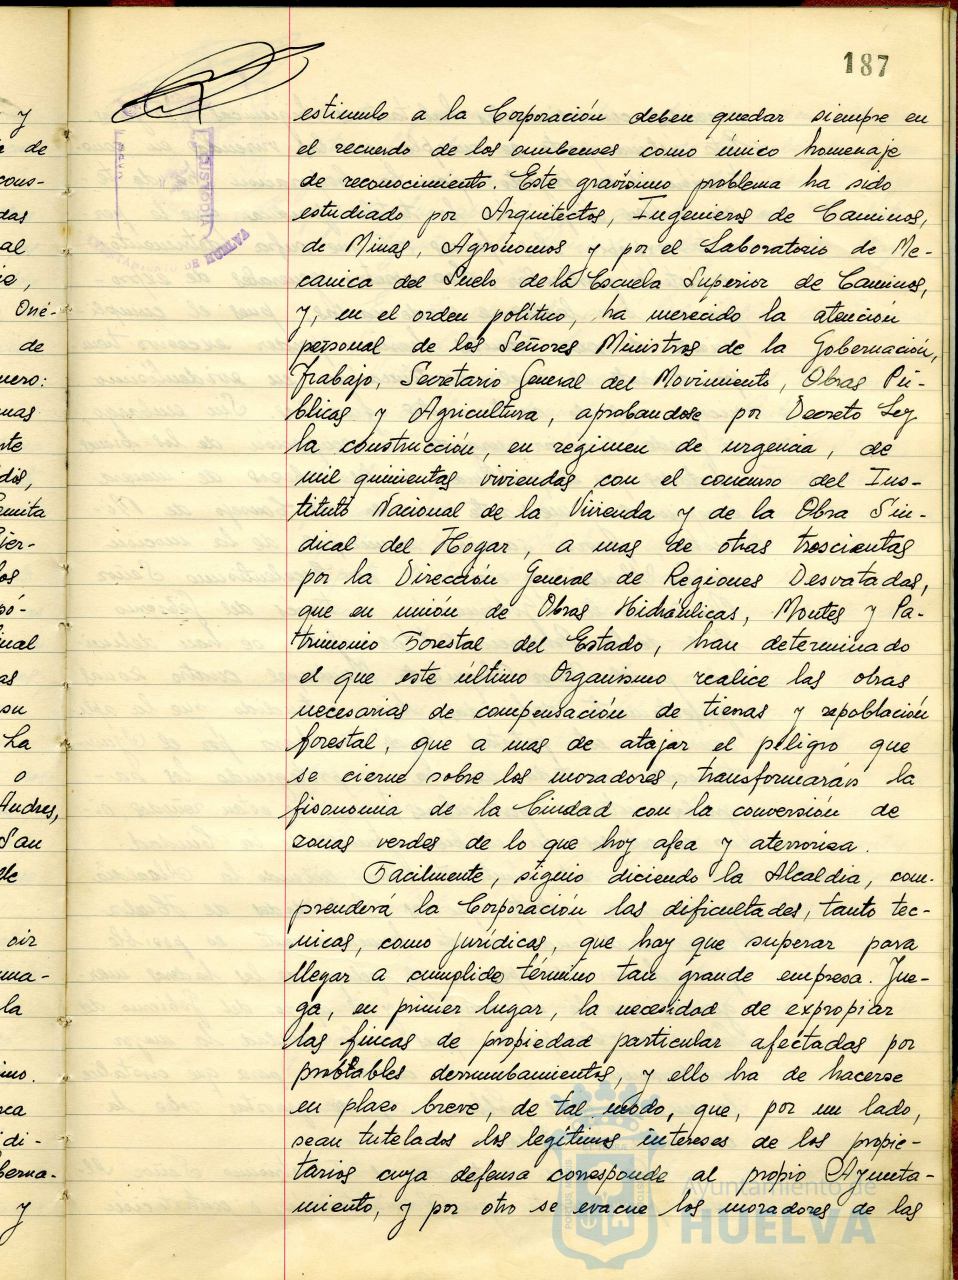 187
estimulo a la Corporación deben quedar siempre en
el recuerdo de los onubenses como único homenaje
de reconocimiento. Este gravísimo problema ha sido
estudiado por Arquitectos, Ingenieros de Caminos,
de Minas, Agrónomos y por el Laboratorio de Me-
canica del Suelo de la Escuela Superior de Caminos,
y, en el orden político, ha merecido la atención
personal de los Señores Ministros de la Gobernación,
Trabajo, Secretario General del Movimiento, Obras Pú-
blicas y Agricultura, aprobandose por Decreto Ley
la construcción, en regimen de urgencia, de
mil quinientas viviendas con el concurso del Ins-
tituto Nacional de la Vivienda y de la Obra Sin-
dical del Hogar, a mas de otras trescientas
por la Dirección General de Regiones Desvatadas,
que en unión de Obras Hidráulicas, Montes y Pa-
trimonio Forestal del Estado, han determinado
el que este último Organismo realice las obras
necesarias de compensación de tierras y repoblación
forestal, que a mas de atajar el peligro que
se cierne sobre los moradores, transformarán la
fisonomia de la Ciudad con la conversión de
zonas verdes de lo que hoy afea y aterroriza.
Facilmente, siguio diciendo la Alcaldia, com-
prenderá la Corporación las dificultades, tanto tec-
nicas, como jurídicas, que hay que superar para
llegar a cumplido término tan grande empresa. Jue-
ga, en primer lugar, la necesidad de expropiar
las fincas de propiedad particular afectadas por
probables derrumbamientos, y ello ha de hacerse
en plazo breve, de tal modo, que, por un lado,
sean tutelados los legítimos intereses de los propie-
tarios cuya defensa corresponde al propio Ayunta-
miento, y por otro se evacue los moradores de las
Ayuntamiento de
HUELVA
y
de
cons-
das
al
Oné-
de
mas
Andres,
San
oir
la
di-
berna-
y